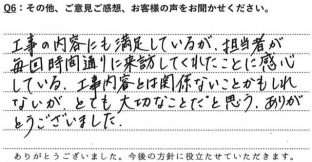 Q6：その他、ご意見ご感想、お客様の声をお聞かせください。
工事の内容にも満足しているが、担当者が
毎回時間通りに来訪してくれたことに感心
している。工事内容とは関係ないことかもしれ
ないが、とても大切なことだと思う。ありが
とうございました。
ありがとうございました。今後の方針に役立たせていただきます。